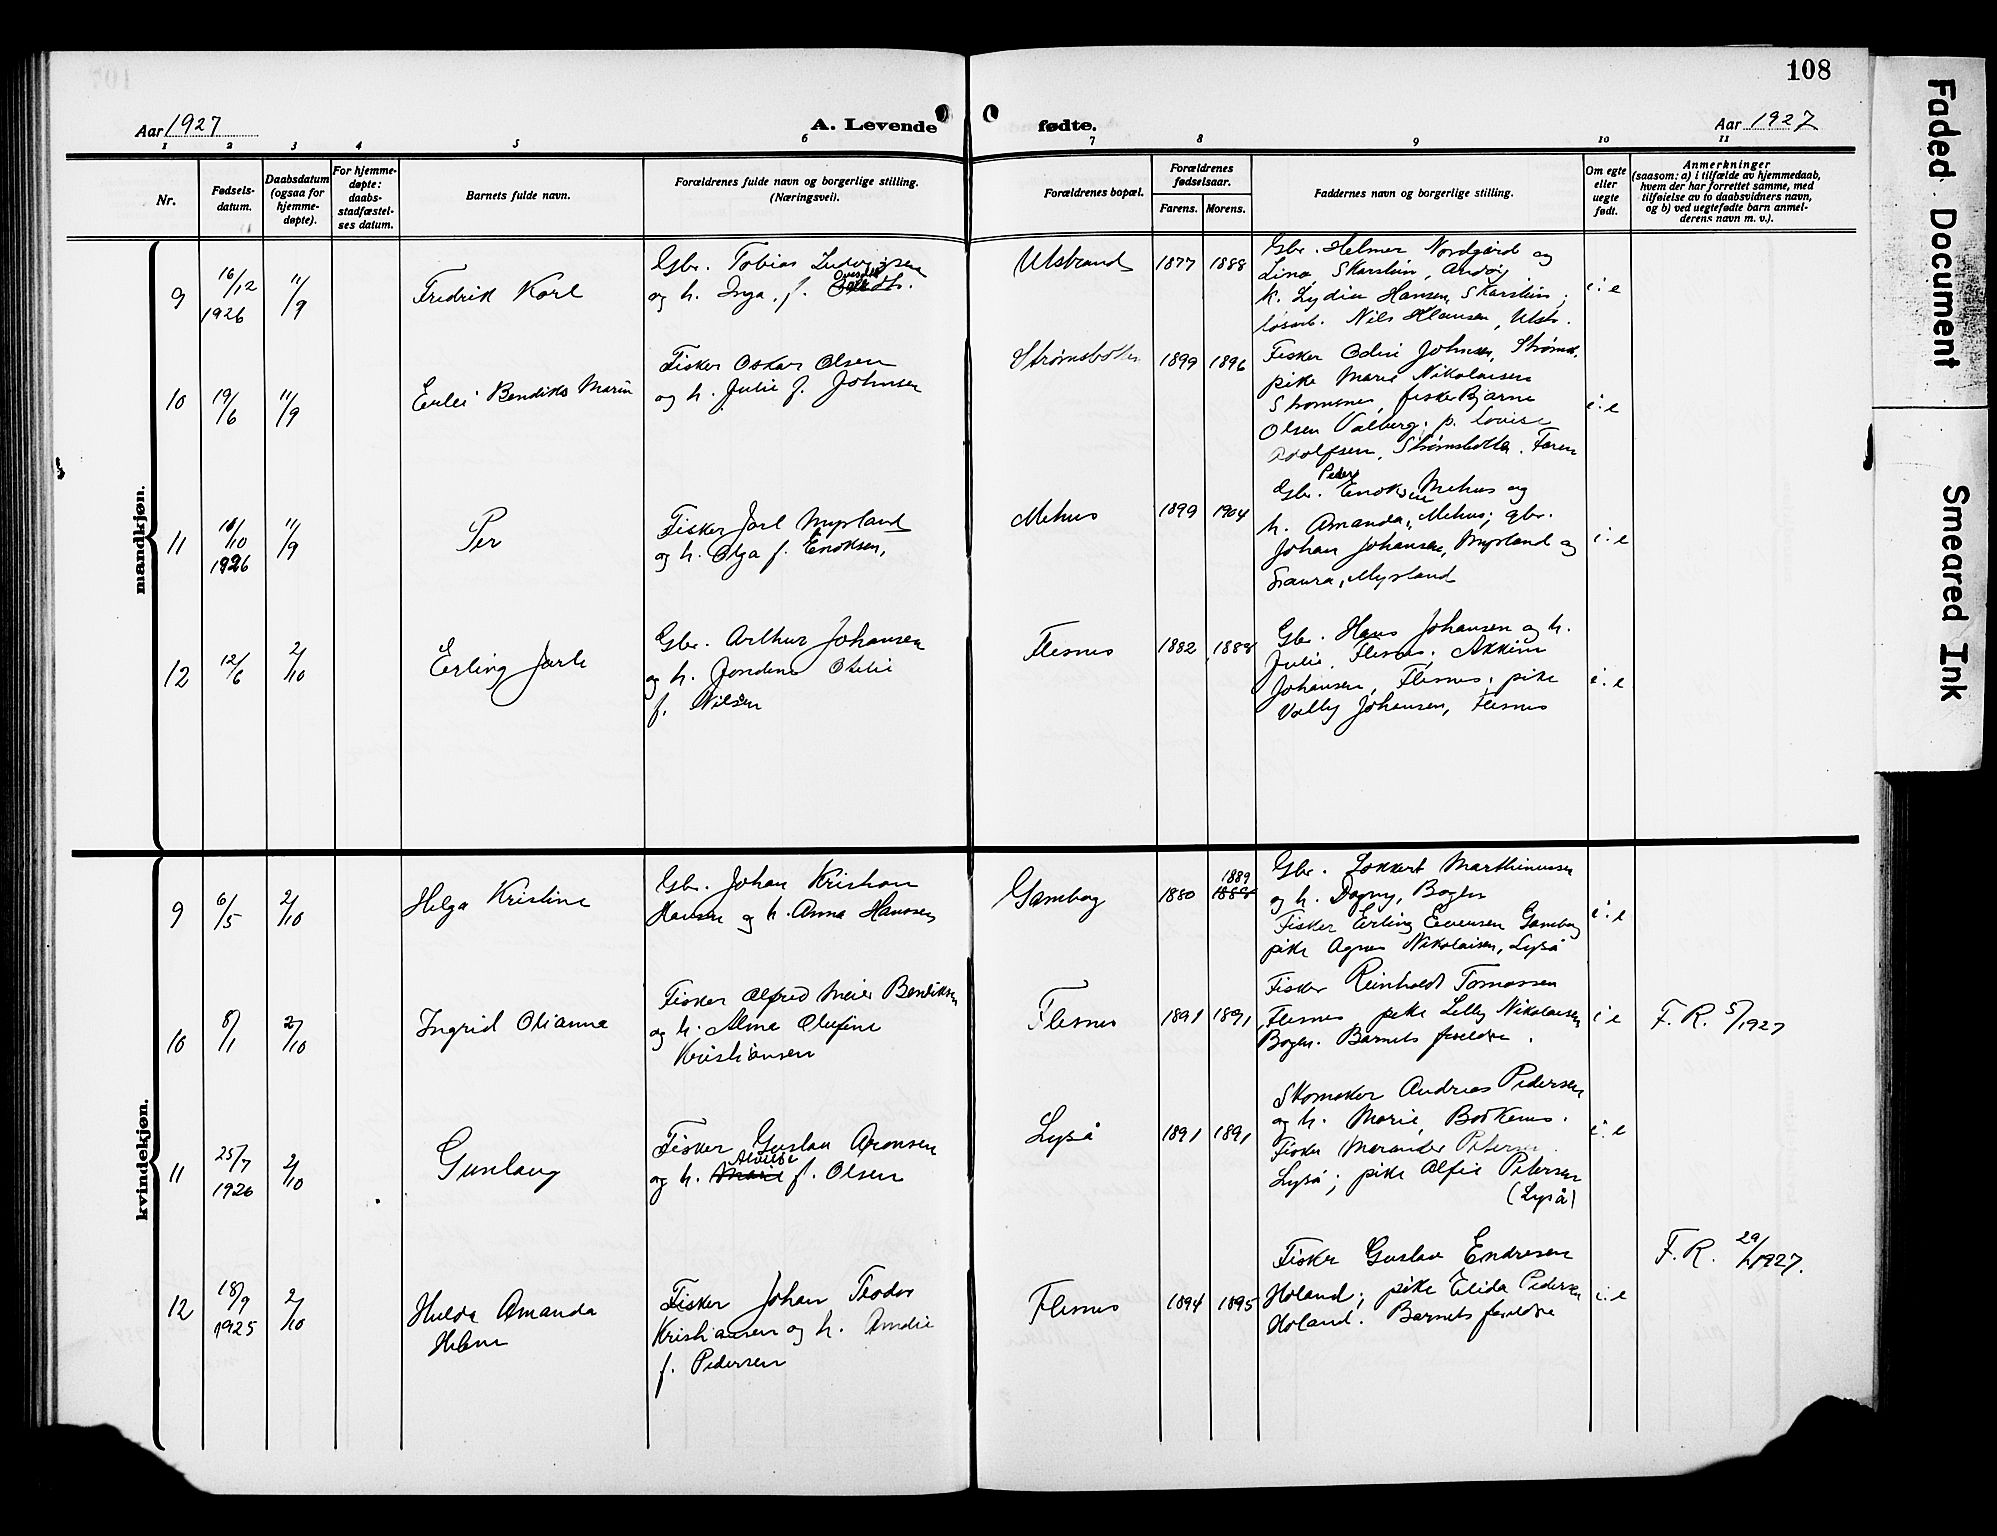 108
Aar 1927
A. Levende fødte.
Aar 1927
1 2 3 4 5 6 7 8 9 10 11
Nr.
Fødsels-
datum.
Daabsdatum
(ogsaa for
hjemme-
døpte).
For hjemme-
døpte:
daabs-
stadfæstel-
ses datum.
Barnets fulde navn.
Forældrenes fulde navn og borgerlige stilling.
(Næringsvei).
Forældrenes bopæl.
Forældrenes
fødselsaar.
Farens. Morens.
Faddernes navn og borgerlige stilling.
Om egte
eller
uegte
født.
Anmerkninger
(saasom: a) i tilfælde av hjemmedaab,
hvem der har forrettet samme, med
tilføielse av to daabsvidners navn,
og b) ved uegtefødte barn anmel-
derens navn m. v.).
mandkjøn.
9
16/12
1926
11/9
Fredrik Karl
Gbr. Tobias Ludvigsen
og h. Inga, f.
Utstrand
1877 1888
Gbr. Helmer Nordgård og
Lina Skarstein, Andøy
k. Lydia Hansen, Skarstein;
løsarb. Nils Hansen, Utstr.
i: e
10
19/6
11/9
Bendiks Marin
Fisker Oskar Olsen
og h. Julie f. Johnsen
Strømsbotten
1899 1896
Fisker Odin Johnsen, Strømsb.
pike Marie Nikolaisen
Strømsnes, fisker Bjarne
Olsen Valberg; p. Lovise
Adolfsen, Strømsbotten. Faren
i: e
11
10/10
1926
11/9
Per
Fisker Jarl Myrland
og h. Olga f. Enoksen,
Mehus
1899 1904
Peder
Gbr. Enoksen Mehus og
h. Amanda, Mehus; gbr.
Johan Johansen, Myrland og
Laura, Myrland
i: e
12
12/6
2/10
Erling Jarle
Gbr. Arthur Johansen
og h. Jondine Otelie
f. Nilsen
Flesnes
1882 1888
Gbr. Hans Johansen og h.
Julie, Flesnes; Akkim
Johansen, Flesnes, pike
Vally Johansen, Flesnes
i: e
kvindekjøn.
9
6/5
2/10
Helga Kristine
Gbr. Johan Kristian
Hansen og h. Anna Hansen
Gambog
1880 1889
1888
Gbr. Lokkert Marthinussen
og h. Dagny, Bogen
Fisker Erling Evensen Gambog
pike Agnes Nikolaisen, Lyså
i: e
10
8/1
2/10
Ingrid Olianna
Fisker Alfred Meier Bendiksen
og h. Alma Olufine
Kristiansen
Flesnes
1891 1891
Fisker Reinholdt Tomassen
Flesnes, pike Lilly Nikolaisen
Bogen. Barnets foreldre.
i: e
F. R. 5/1927
11
25/7
1926
2/10
Gunlaug
Fisker Gustav Aronsen
Alvilde
og h. Marie f. Olsen
Lyså
1891 1891
Skomaker Andreas Pedersen
og h. Marie, Botkenes.
Fisker Merander Petersen
Lyså; pike Alfie Petersen
(Lyså)
i: e
12
18/9
1925
2/10
Hulda Amanda
Fisker Johan Teodor
Kristiansen og h. Amelie
f. Pedersen
Flesnes
1894 1895
Fisker Gustav Endresen
Holand; pike Elida Pedersen
Holand. Barnets foreldre
i: e
F. R. 29/1927.
Faded Document
Smeared Ink